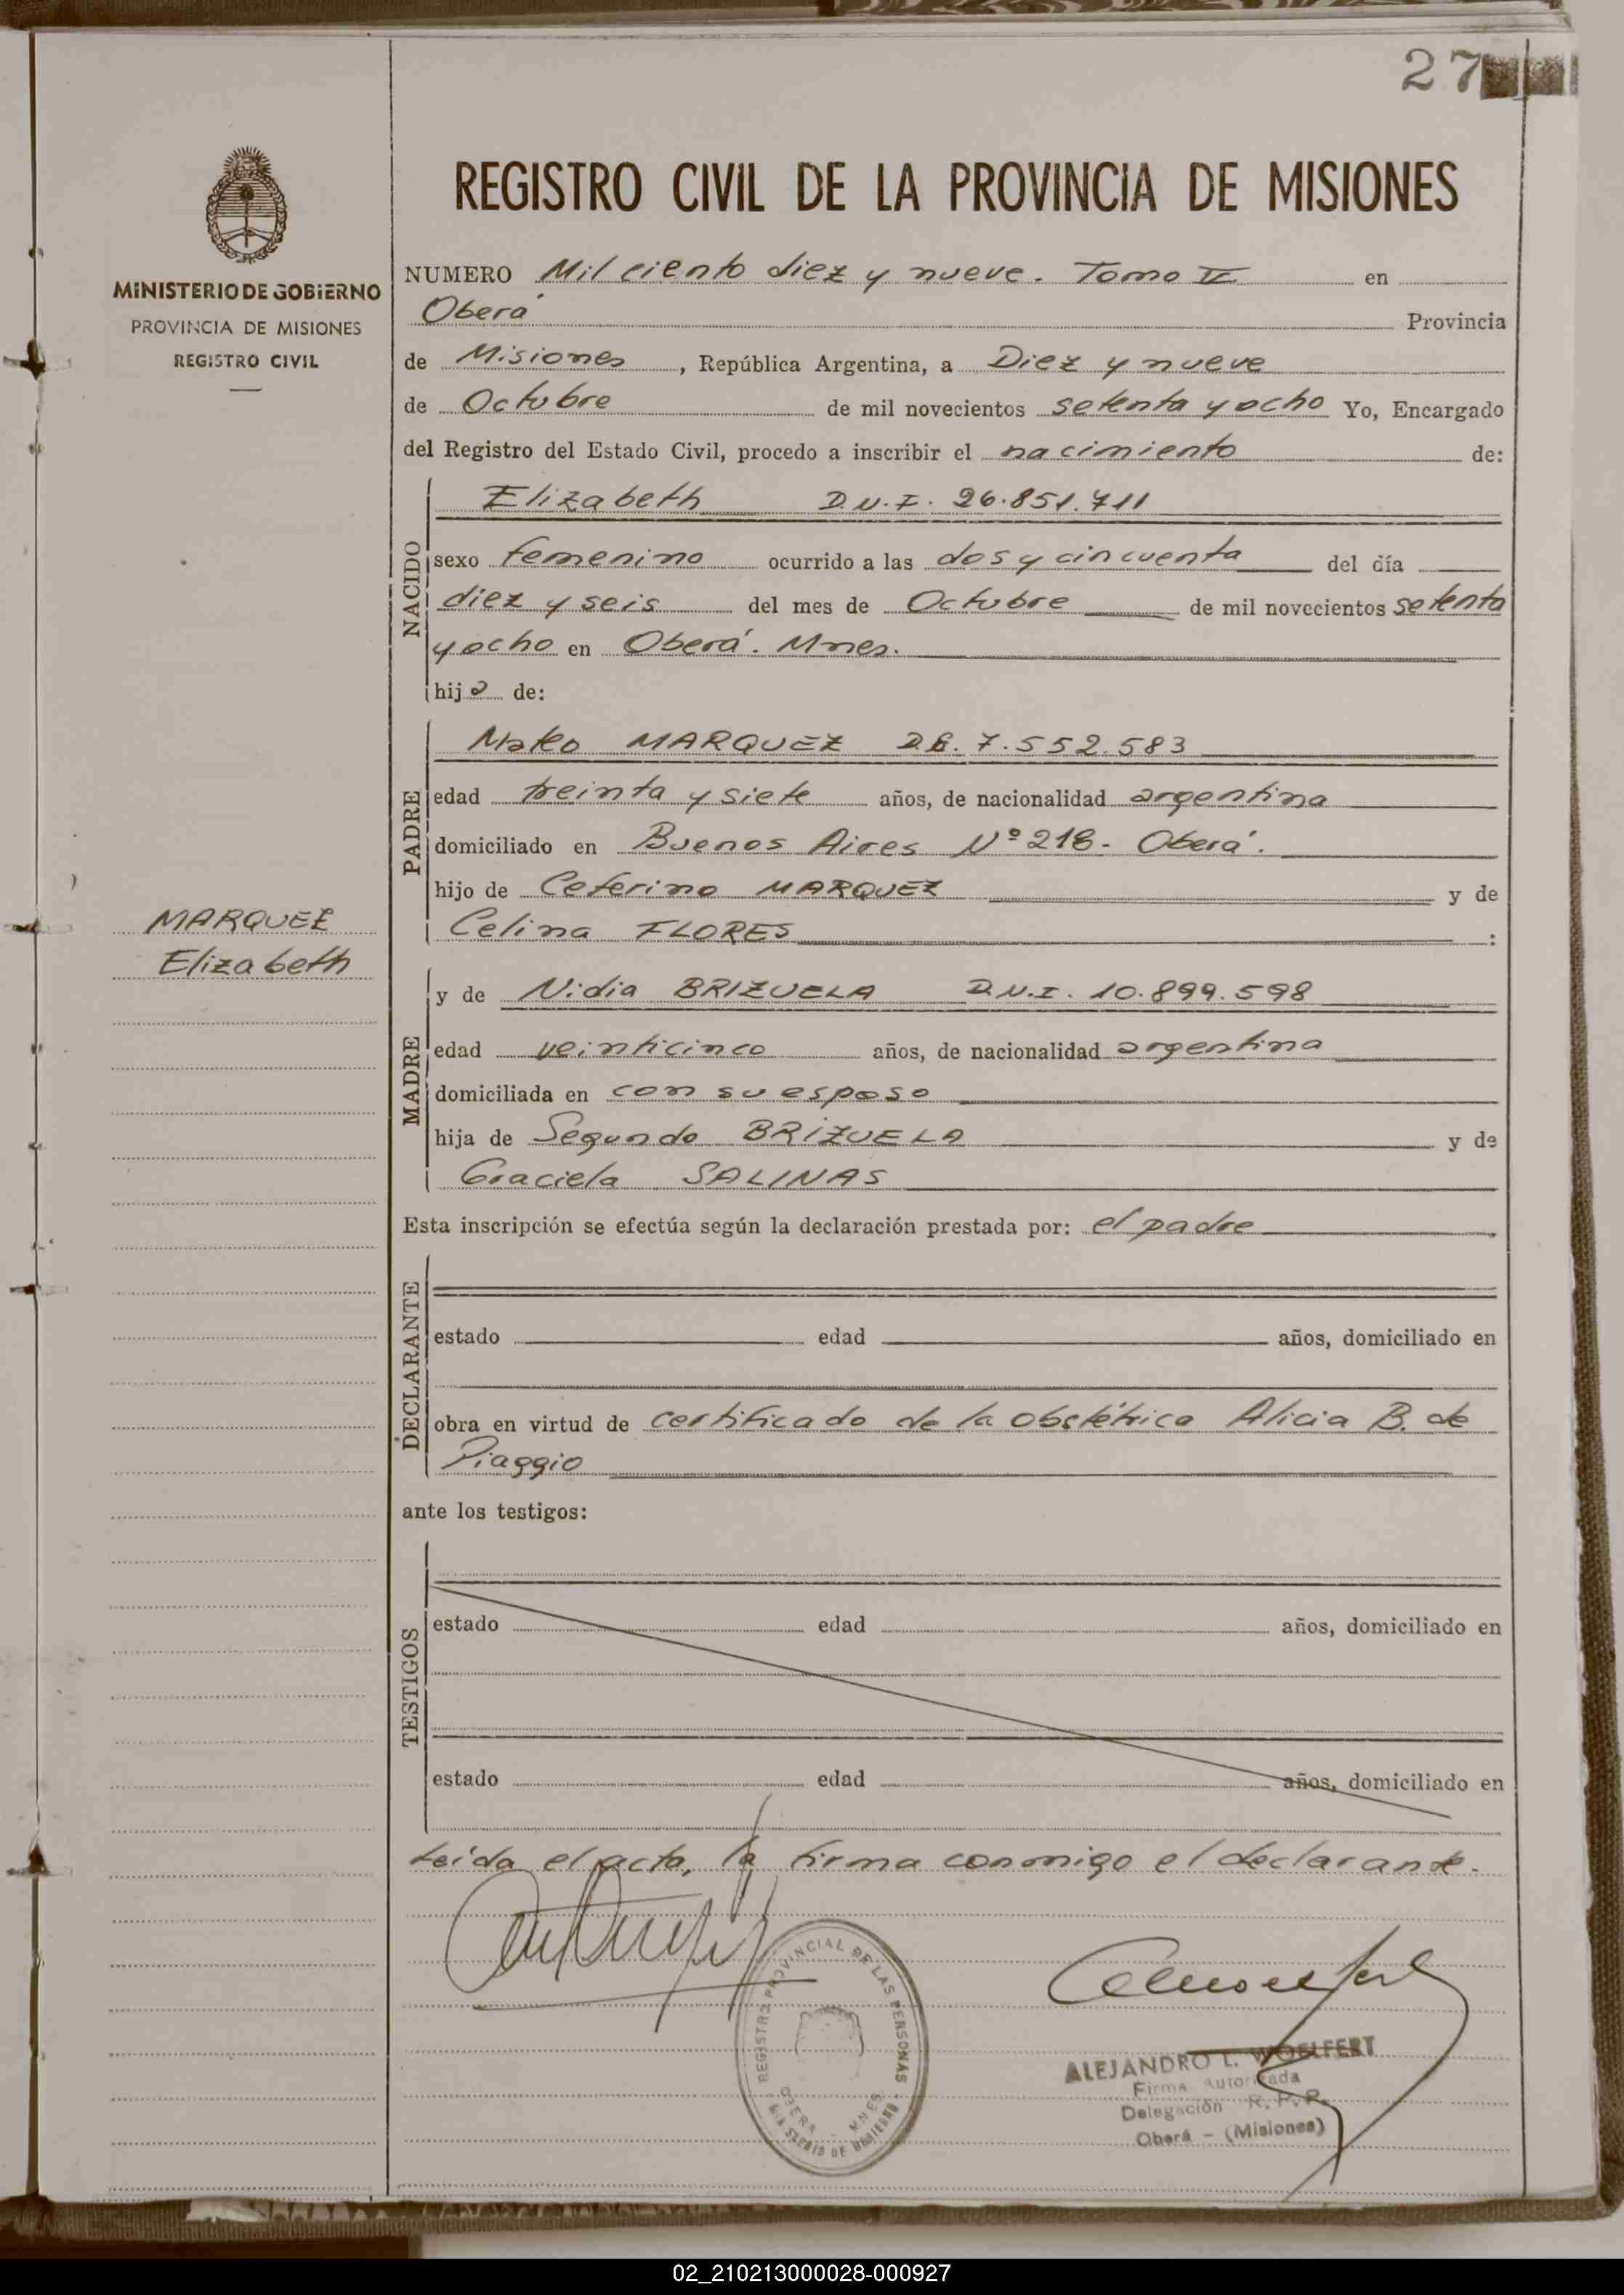 27
REGISTRO CIVIL DE LA PROVINCIA DE MISIONES
MINISTERIO DE GOBIERNO
PROVINCIA DE MISIONES
REGISTRO CIVIL
MARQUEZ
Elizabeth
NUMERO Mil ciento diez y nueve. Tomo V en
Oberá Provincia
de Misiones, República Argentina, a Diez y nueve
de Octubre de mil novecientos setenta y ocho Yo, Encargado
del Registro del Estado Civil, procedo a inscribir el nacimiento de:
NACIDO
Elizabeth D.N.I. 26.851.711
sexo femenino ocurrido a las dos y cincuenta del día
diez y seis del mes de Octubre de mil novecientos setenta
y ocho en Oberá. Mnes.
hija de:
PADRE
Mateo MARQUEZ 7.552.583
edad treinta y siete años, de nacionalidad argentina
domiciliado en Buenos Aires Nº 218 - Oberá.
hijo de Ceferino MARQUEZ y de
Celina FLORES :
MADRE
y de Nidia BRIZUELA D.N.I. 10.899.598
edad veinticinco años, de nacionalidad argentina
domiciliada en con su esposo
hija de Segundo BRIZUELA y de
Graciela SALINAS
Esta inscripción se efectúa según la declaración prestada por: el padre
DECLARANTE
estado edad años, domiciliado en
obra en virtud de certificado de la obstétrica Alicia B. de
Piaggio
ante los testigos:
TESTIGOS
estado edad años, domiciliado en
estado edad años, domiciliado en
Leída el acta, la firma conmigo el declarante.
REGISTRO PROVINCIAL DE LAS PERSONAS
OBERA - MNES.
MINISTERIO DE GOBIERNO
ALEJANDRO L. WOELFERT
Firma Autorizada
Delegación R. P. P.
Oberá - (Misiones)
02_210213000028-000927